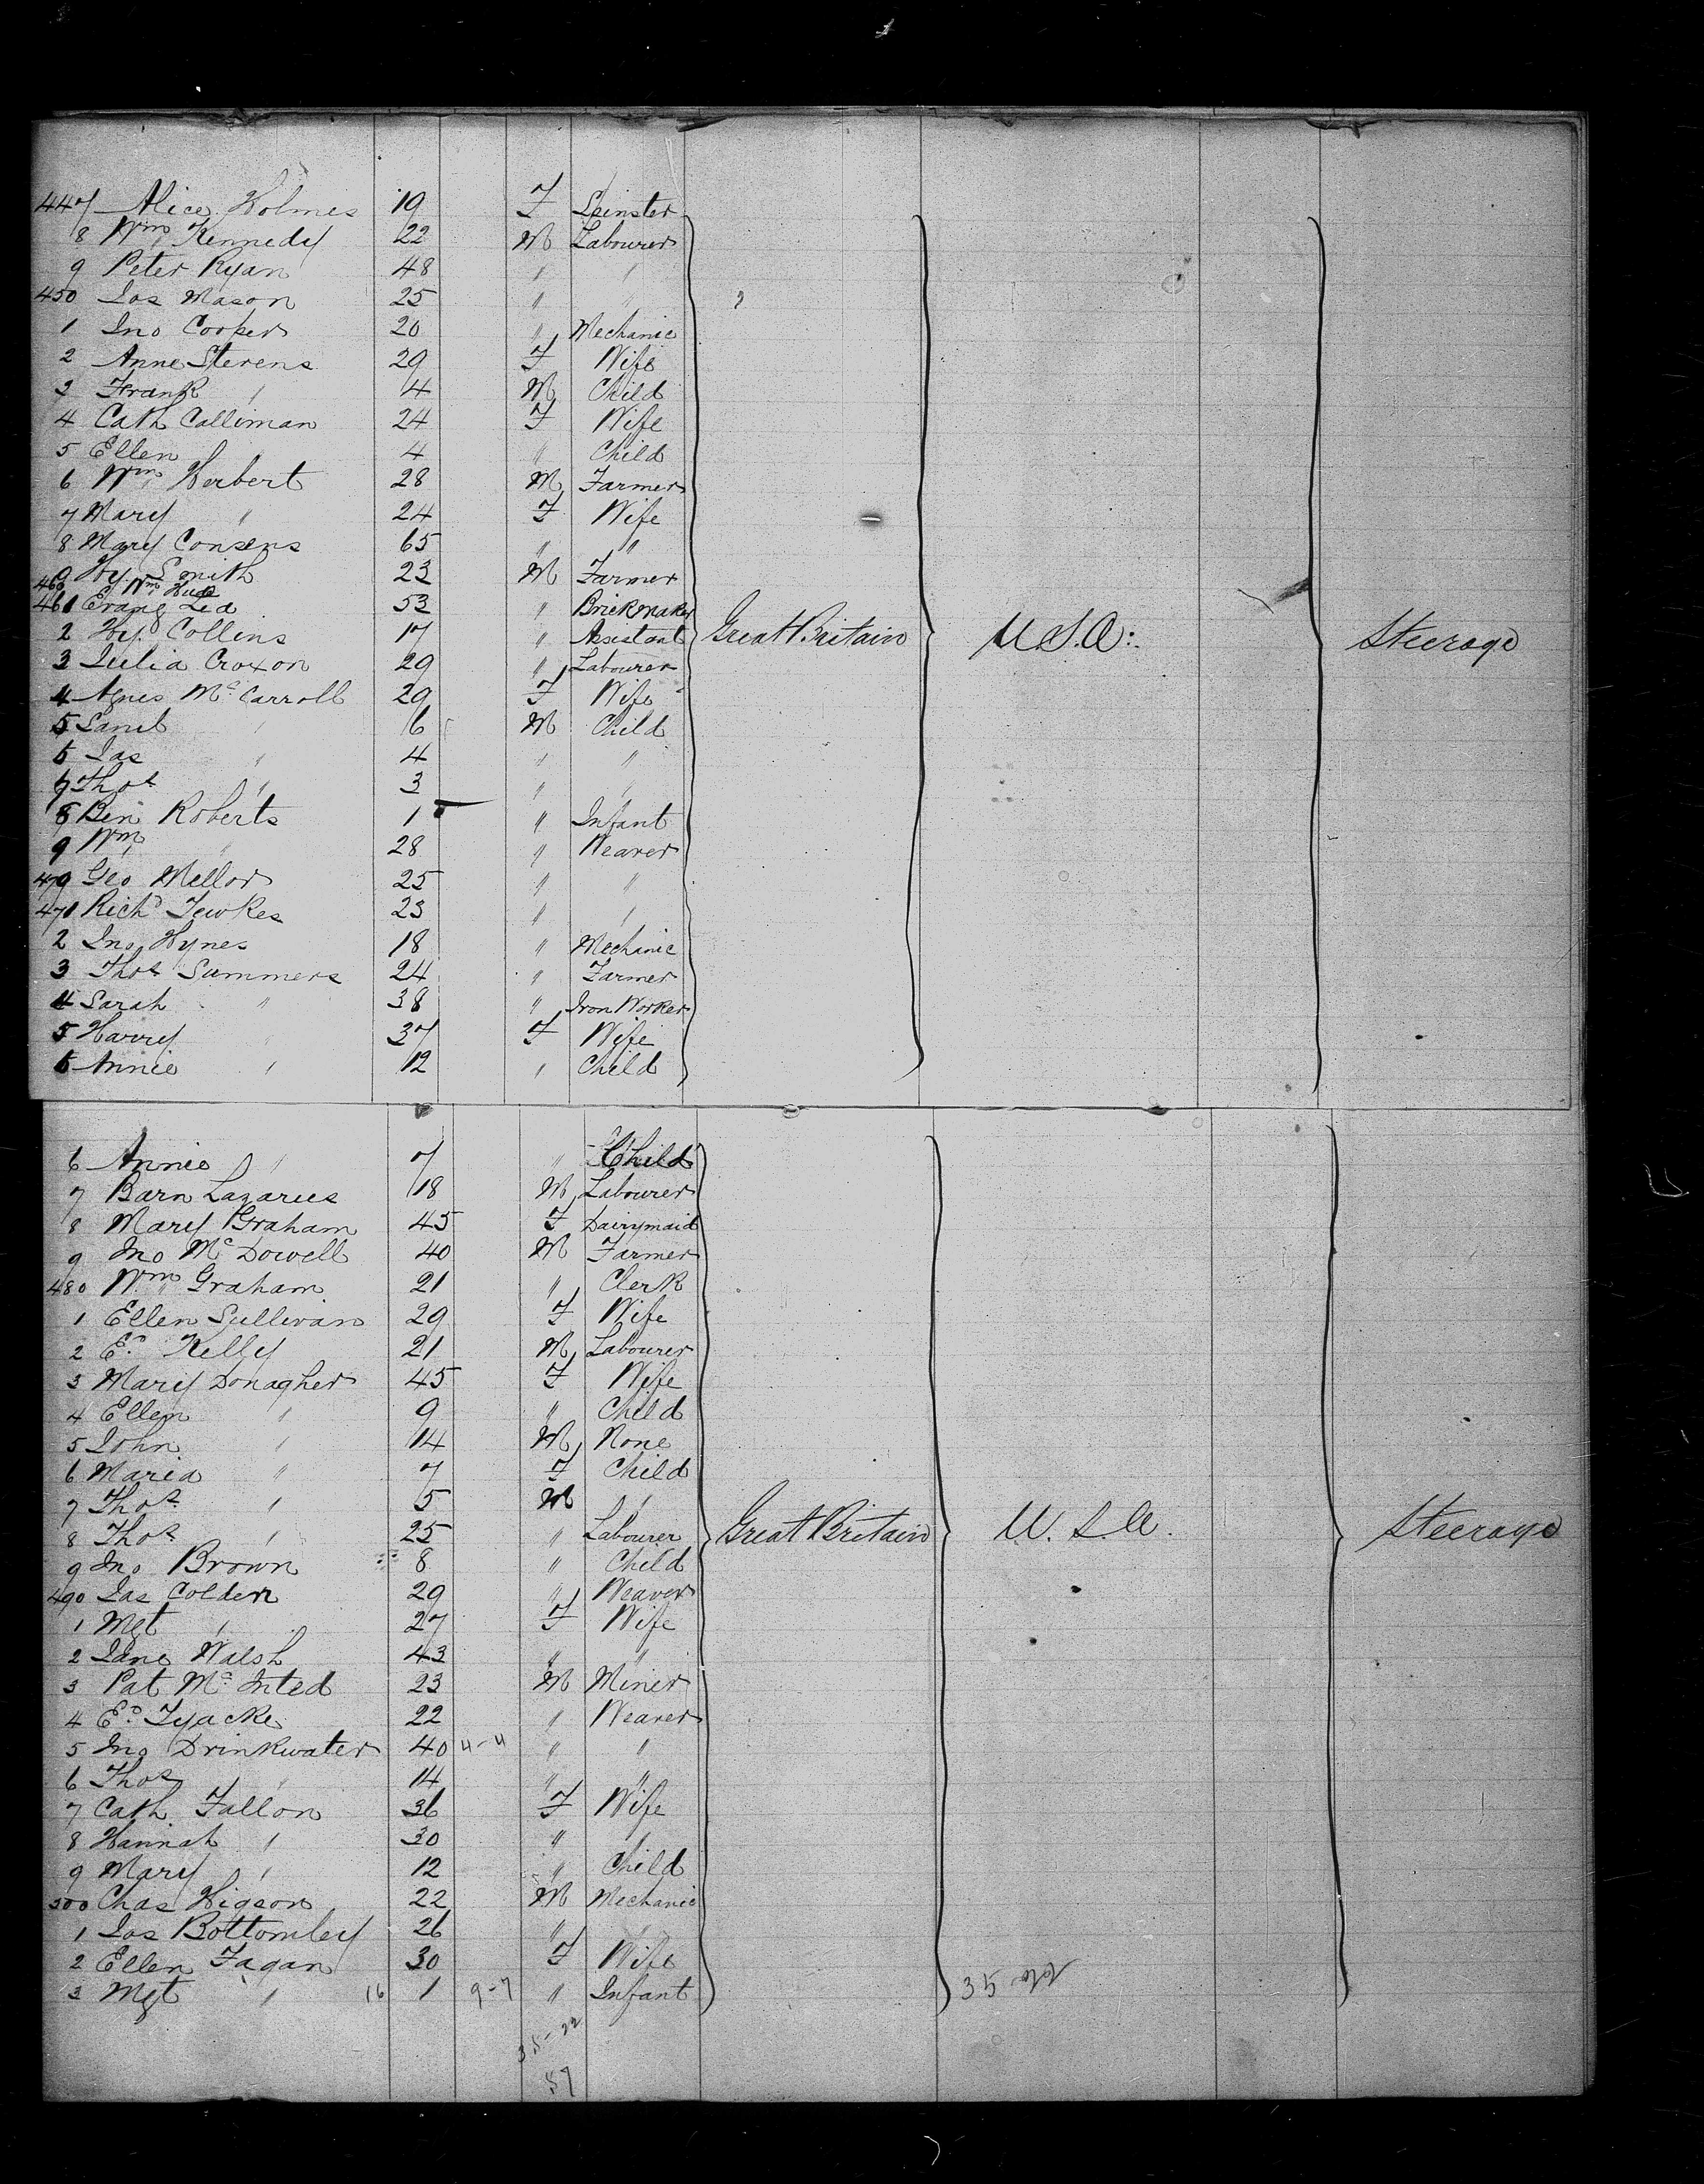 447 Alice Holmes 19 F Spinster
8 Wm Kennedy 22 M Labourer
9 Peter Ryan 48 " "
450 Jas Mason 25 " "
1 Jno Cooper 20 " Mechanic
2 Anne Stevens 29 F Wife
3 Frank " 4 M Child
4 Cath Calliman 24 F Wife
5 Ellen 4 " Child
6 Wm Herbert 28 M Farmer
7 Mary " 24 F Wife
8 Mary Consens 65 " "
9 Hy. Smith 23 M Farmer
460 Wm
461 Evang Lea 53 " Brickmaker
2 Hy. Collins 17 " Assistant Great Britain U.S.A: Steerage
3 Julia Croxon 29 " Labourer
4 Agnes McCarroll 29 F Wife
5 Saml " 6 M Child
6 Jas " 4 " "
7 Thos " 3 " "
8 Ben Roberts 1 " Infant
9 Wm " 28 " Weaver
470 Geo Mellor 25 " "
471 Richd Tewkes 23 " "
2 Jno Hynes 18 " Mechanic
3 Thos Summers 24 " Farmer
4 Sarah " 38 " Iron Worker
5 Harry " 37 F Wife
6 Annie " 12 " Child
6 Annie " 7 " Child
7 Barn Lazarus 18 M Labourer
8 Mary Graham 45 F Dairymaid
9 Jno McDowell 40 M Farmer
480 Wm Graham 21 " Clerk
1 Ellen Sullivan 29 F Wife
2 Ed Kelly 21 M Labourer
3 Mary Donagher 45 F Wife
4 Ellen " 9 " Child
5 John " 14 M None
6 Maria " 7 F Child
7 Thos " 5 M "
8 Thos " 25 " Labourer Great Britain U.S.A. Steerage
9 Jno Brown 8 " Child
490 Jas Colden 29 " Weaver
1 Mgt " 27 F Wife
2 Jane Walsh 43 " "
3 Pat McInted 23 M Miner
4 Ed Tyacke 22 " Weaver
5 Jno Drinkwater 40 4-4 " "
6 Thos " 14 " "
7 Cath Fallon 36 F Wife
8 Hannah " 30 " "
9 Mary " 12 " Child
500 Chas Higson 22 M Mechanic
1 Jas Bottomley 26 " "
2 Ellen Fagan 30 F Wife
3 Mgt " 16 1 9-7 " Infant 35
35-22
57